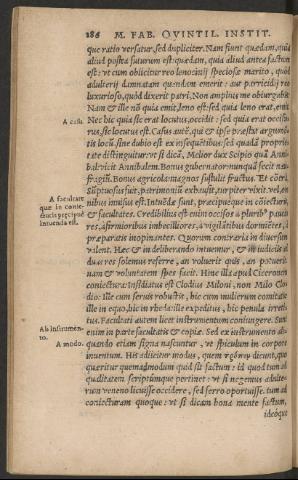 186 M. FAB. QVINTIL. INSTIT.
que ratio versatur, sed dupliciter. Nam fiunt quædam, quia
aliud postea futurum est: quædam, quia aliud antea factum
est: vt cum obiicitur reo lenocinij speciosæ marito, quòd
adulterij damnatam quendam emerit: aut parricidij reo
luxurioso, quòd dixerit patri, Non amplius me obiurgabis.
Nam & ille nõ quia emit, leno est: sed quia leno erat, emit.
A casu. Nec hic quia sic erat locutus, occidit: sed quia erat occisu
rus, sic locutus est. Casus autẽ, qui & ipse præstat argumẽ
tis locũ, sine dubio est ex insequẽtibus: sed quadã proprie
tate distinguitur: vt si dicã, Melior dux Scipio quã Anni-
bal: vicit Annibalem. Bonus gubernator: nunquã fecit nau
fragiũ. Bonus agricola: magnos sustulit fructus. Et cõtrà,
Sũptuosus fuit, patrimoniũ exhausit, turpiter vixit, vel, om
A facultate
que in coniec
turis præcipuè
intuenda est.
nibus inuisus est. Intuẽdæ sunt, præcipueque in cõiecturis,
& facultates. Credibilius est enim occisos à plurib⁹ pauci
res, à firmioribus imbecilliores, à vigilãtibus dormiẽtes, à
præparatis inopinantes. Quorum contraria in diuersum
valent. Hæc & in deliberando intuemur, & in iudiciis ad
duas res solemus referre, an voluerit quis, an potuerit.
nam & voluntatem spes facit. Hinc illa apud Ciceronem
coniectura: Insidiatus est Clodius Miloni, non Milo Clo
dio: ille cum seruis robustis, hic cum mulierum comitatu:
ille in equo, hic in rheda: ille expeditus, hic penula irreti-
tus. Facultati autem licet instrumentum coniungere. Sunt
Ab instrumen-
to.
enim in parte facultatis & copiæ. Sed ex instrumento ali-
quando etiam signa nascuntur, vt spiculum in corpore
A modo. inuentum. His adiicitur modus, quem dicunt, quo
quæritur quemadmodum quid sit factum: id quod tum ad
qualitatem scriptumque pertinet: vt si negemus adulte-
rum veneno licuisse occidere, sed ferro oportuisse. tum ad
coniecturam quoque: vt si dicam bona mente factum,
ideòque